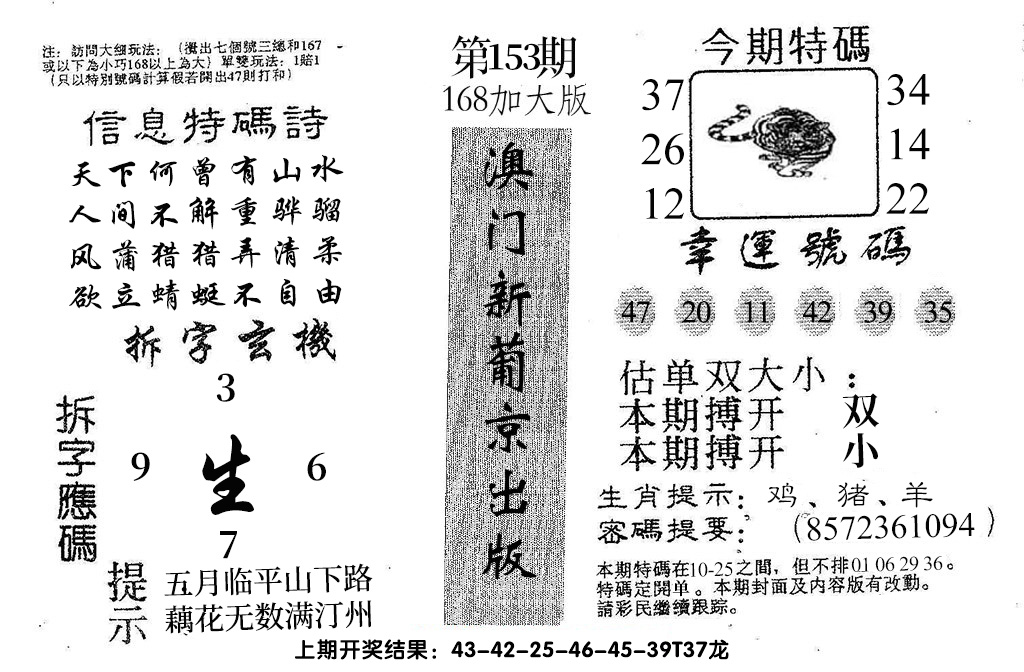 注：訪問大细玩法：（攪出七個號三總和167
或以下為小巧168以上為大）單雙玩法：1賠1
（只以特別號碼計算假若開出47則打和）
信息特碼詩
天下何曾有山水
人间不解重骅骝
风蒲猎猎弄清柔
欲立蜻蜓不自由
拆字玄機
拆字應碼
3
9 生 6
7
提示
五月临平山下路
藕花无数满汀州
第153期
168加大版
澳门新葡京出版
今期特碼
37 34
26 14
12 22
幸運號碼
47 20 11 42 39 35
估单双大小：
本期搏开 双
本期搏开 小
生肖提示：鸡、猪、羊
密碼提要：（8572361094）
本期特碼在10-25之間，但不排01 06 29 36。
特碼定開单。本期封面及内容版有改動。
請彩民繼續跟踪。
上期开奖结果：43-42-25-46-45-39T37龙